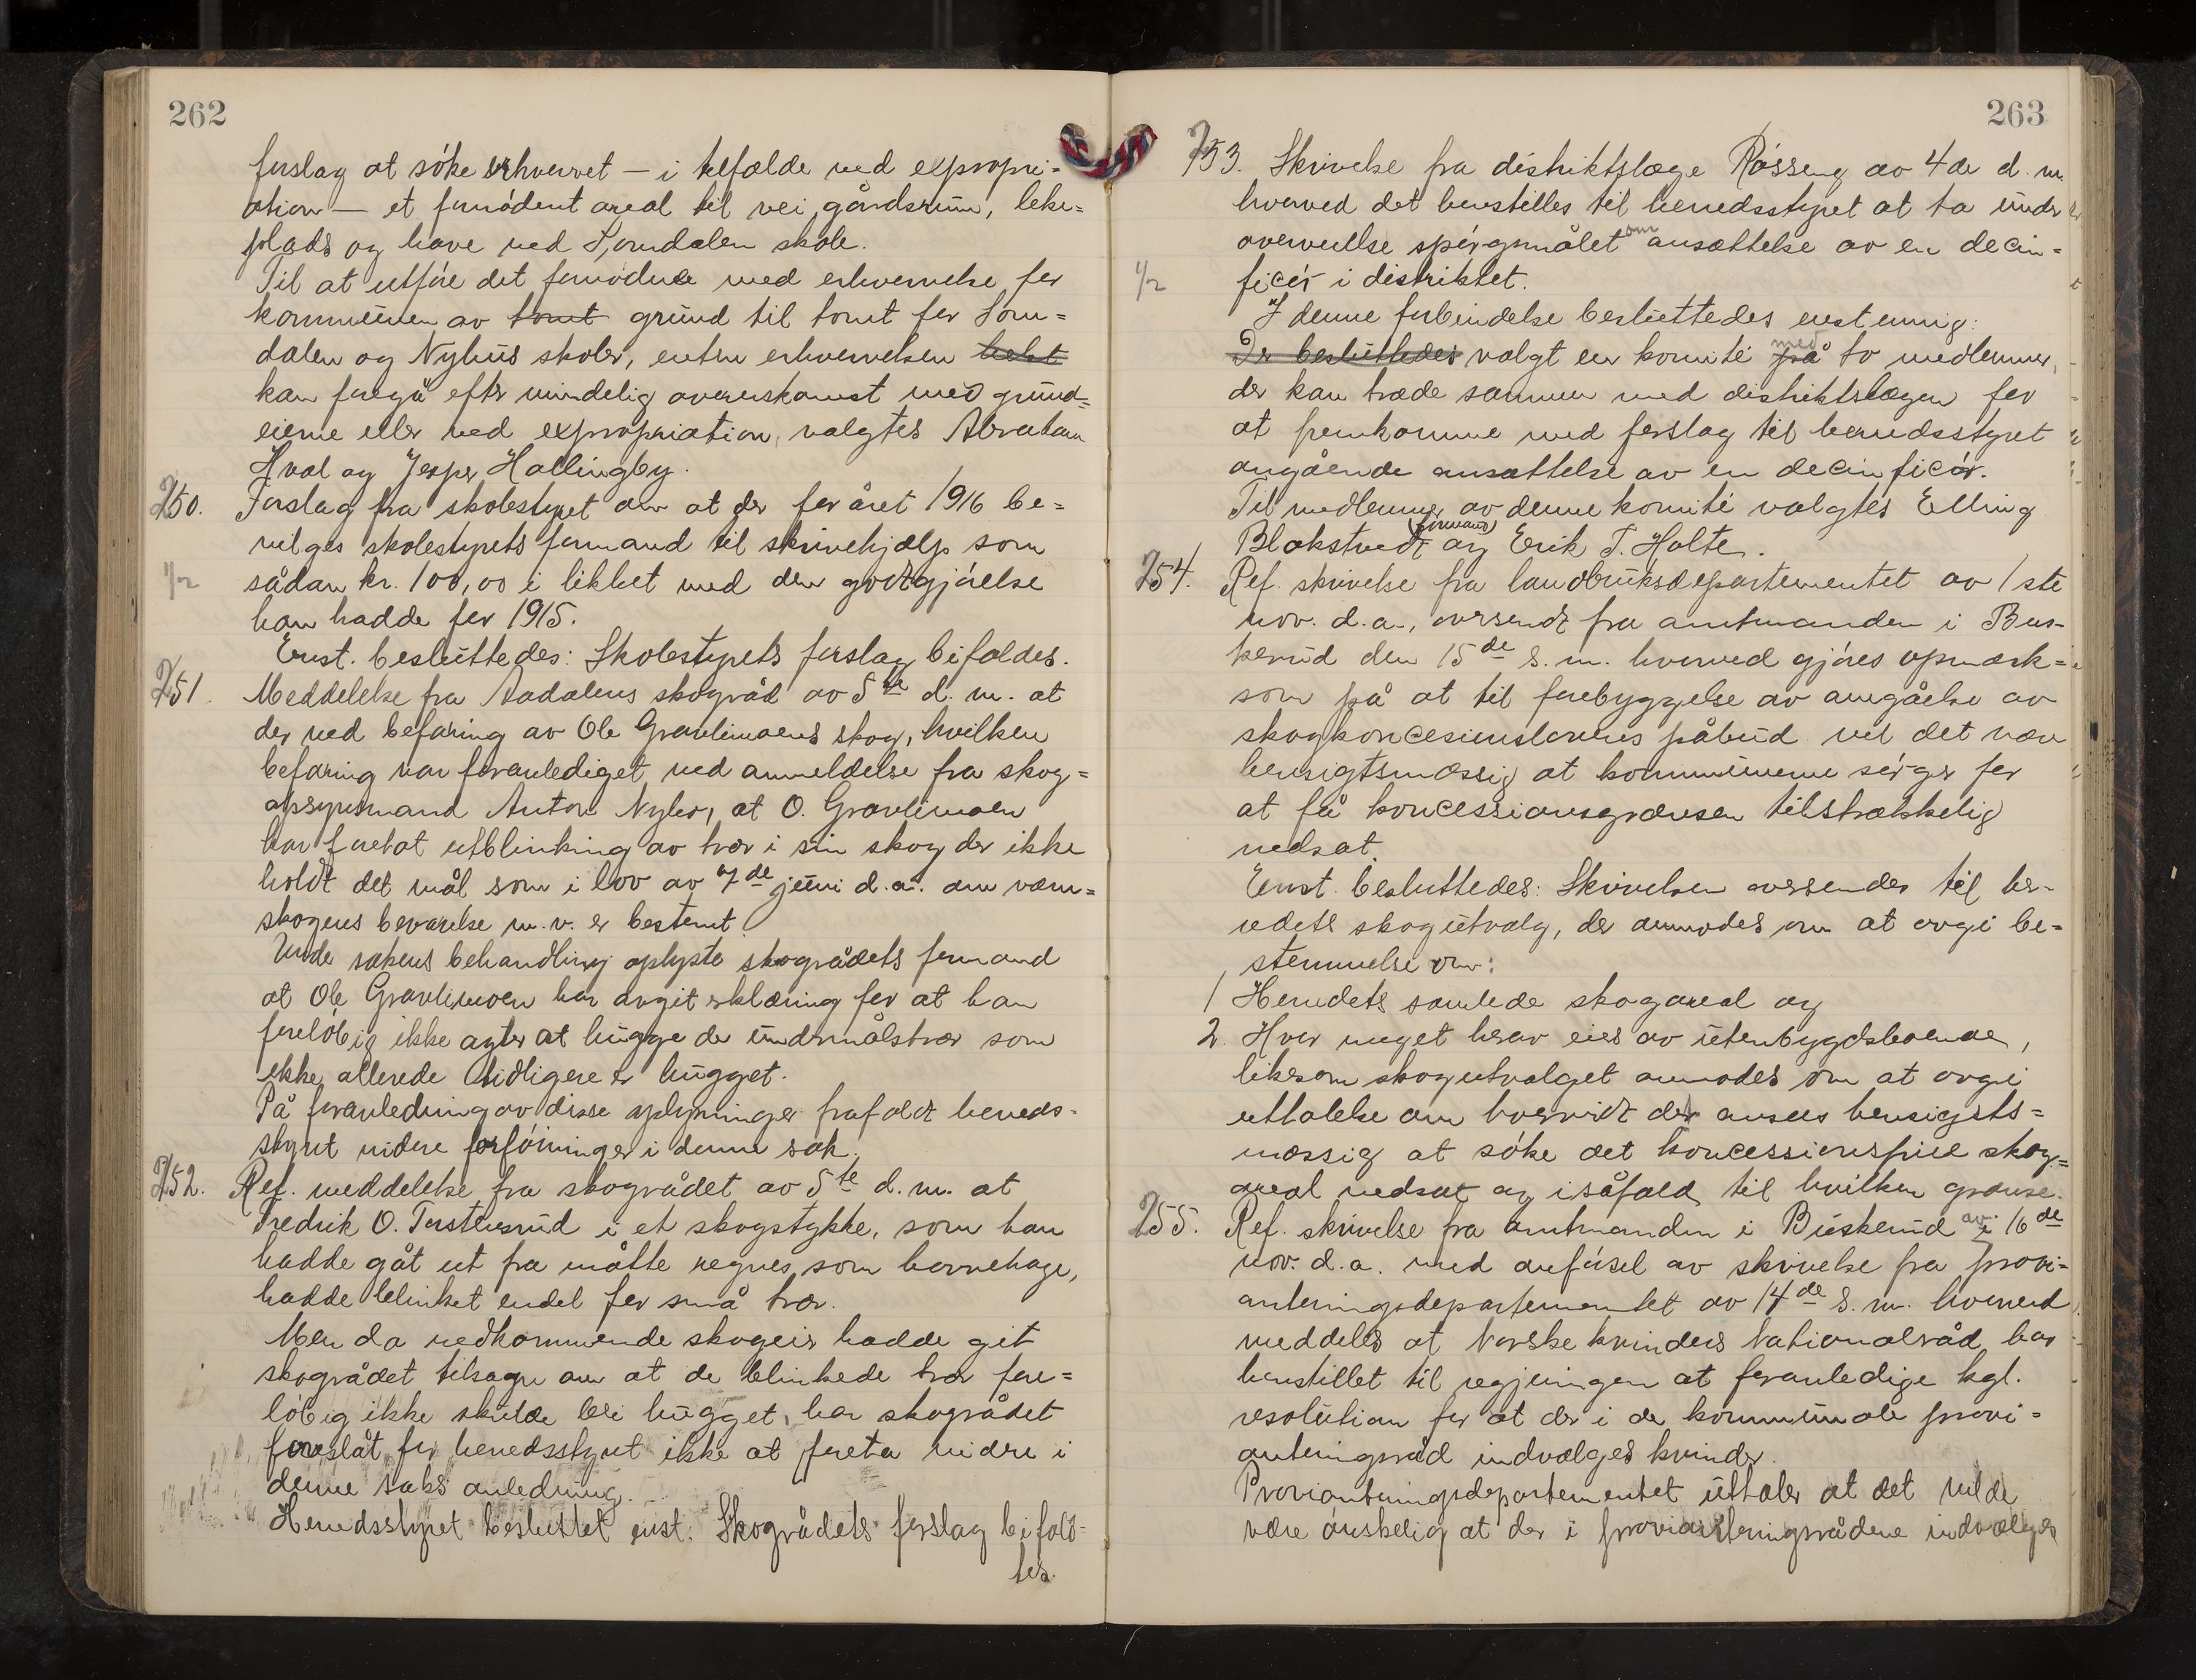 262
forslag at søke erhvervet — i tilfælde ved expropri=
ation — et fornødent areal til vei, gårdsrum, leke=
plads og have ved Somdalen skole.
Til at utføre det fornødne med erhvervelse for
kommunen av tomt grund til tomt for Som=
dalen og Nyhus skoler, enten erhvervelsen helst
kan foregå efter mindelig overenskomst med grund=
eierne eller ved expropriation, valgtes Abraham
Hval og Jesper Hallingby.
250. Forslag fra skolestyret om at der for året 1916 be=
vilges skolestyrets formand til skrivehjælp som
1/2 sådan kr. 100,00 i likhet med den godtgjørelse
han hadde for 1915.
Enst. besluttedes: Skolestyrets forslag bifaldes.
251. Meddelelse fra Aadalens skogråd av 5te d. m. at
der ved befaring av Ole Gravlimoens skog, hvilken
befaring var foranlediget ved anmeldelse fra skog=
opsynsmand Anton Nyhus, at O. Gravlimoen
har foretat utblinking av trær i sin skog der ikke
holdt det mål som i lov av 7de juni d.a. om værn=
skogens bevarelse m.v. er bestemt.
Under sakens behandling oplyste skogrådets formand
at Ole Gravlimoen har avgit erklæring for at han
foreløbig ikke agter at hugge de undermålstrær som
ikke allerede tidligere er hugget.
På foranledning av disse oplysninger frafaldt hereds-
styret videre forføininger i denne sak.
252. Ref. meddelelse fra skogrådet av 5te d. m. at
Fredrik O. Torstensrud i et skogstykke, som han
hadde gåt ut fra måtte regnes som havnehage,
hadde blinket endel for små trær.
Men da vedkommende skogeier hadde git
skogrådet tilsagn om at de blinkede trær fore=
løbig ikke skulde bli hugget, har skogrådet
foreslåt for heredsstyret ikke at foreta videre i
denne saks anledning.
Heredsstyret besluttet enst. Skogrådets forslag bifald-
tes.
263
253. Skrivelse fra distriktslæge Røsseng av 4de d. m.
hvorved det henstilles til heredsstyret at ta under
overveielse spørgsmålet om ansættelse av en decin=
1/2 ficør i distriktet.
I denne forbindelse besluttedes enstemmig:
Der besluttedes valgt en komité på med to medlemmer,
der kan træde sammen med distriktslægen for
at fremkomme med forslag til heredsstyret
angående ansættelse av en decinficør.
Til medlemmer av denne komité valgtes Elling
Blakstvedt (formand) og Erik T. Holte.
254. Ref. skrivelse fra landbruksdepartementet av 1ste
nov. d.a., oversendt fra amtmanden i Bus-
kerud den 15de s.m. hvorved gjøres opmerk=
som på at til forebyggelse av omgåelse av
skogkoncesionslovens påbud vil det være
hensigtsmæssig at kommunerne sørger for
at få koncessionsgrænsen tilstrækkelig
nedsat.
Enst. besluttedes: Skrivelsen oversendes til he-
redets skogutvalg, der anmodes om at avgi be-
stemmelse om:
1 Heredets samlede skogareal og
2. Hvor meget herav eies av utenbygdsboende,
likesom skogutvalget anmodes om at avgi
uttalelse om hvorvidt det ansees hensigts=
mæssig at søke det koncessionsfrie skog=
areal nedsat og isåfald til hvilken grænse.
255. Ref. skrivelse fra amtmanden i Buskerud av 16de
nov. d.a. med avførsel av skrivelse fra provi=
anteringsdepartementet av 14de s.m. hvorved
meddeles at Norske kvinders Nationalråd har
henstillet til regjeringen at foranledige kgl.
resolution for at der i de kommunale provi=
anteringsråd indvælges kvinder.
Provianteringsdepartementet uttaler at det vilde
være ønskelig at der i provianteringsrådene indvælges